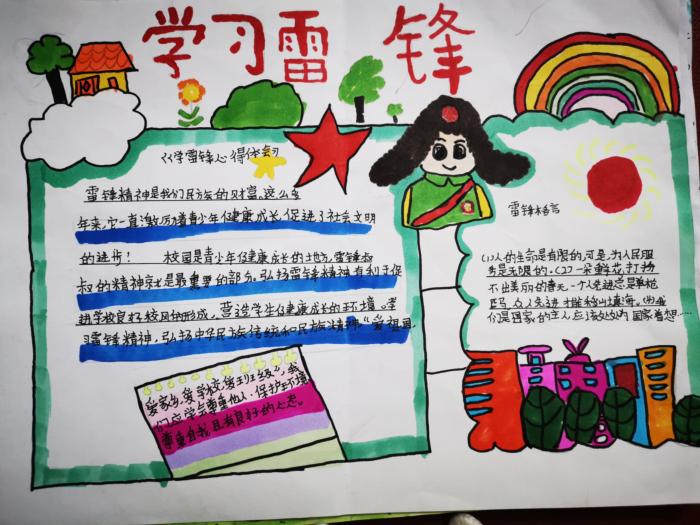 学习雷锋
《学雷锋心得体会》
雷锋精神是我们民族的财富。这么多
年来,它一直激励着青少年健康成长,促进了社会文明
的进步! 校园是青少年健康成长的地方,雷锋叔
叔的精神就是最重要的部分。弘扬雷锋精神有利于促
进学校良好校风的形成,营造学生健康成长的环境。学
习雷锋精神,弘扬中华民族传统和民族精神。“爱祖国,
爱家乡,爱学校,爱班级”,我
们应学会尊重他人,保护环境
尊重自我,具有良好的心态。
雷锋格言
(1)人的生命是有限的,可是,为人民服
务是无限的,(2)一朵鲜花,打扮
不出美丽的春天,一个人先进总是单枪
匹马,众人先进才能移山填海。(3)我
们是国家的主人,应该处处为国家着想……